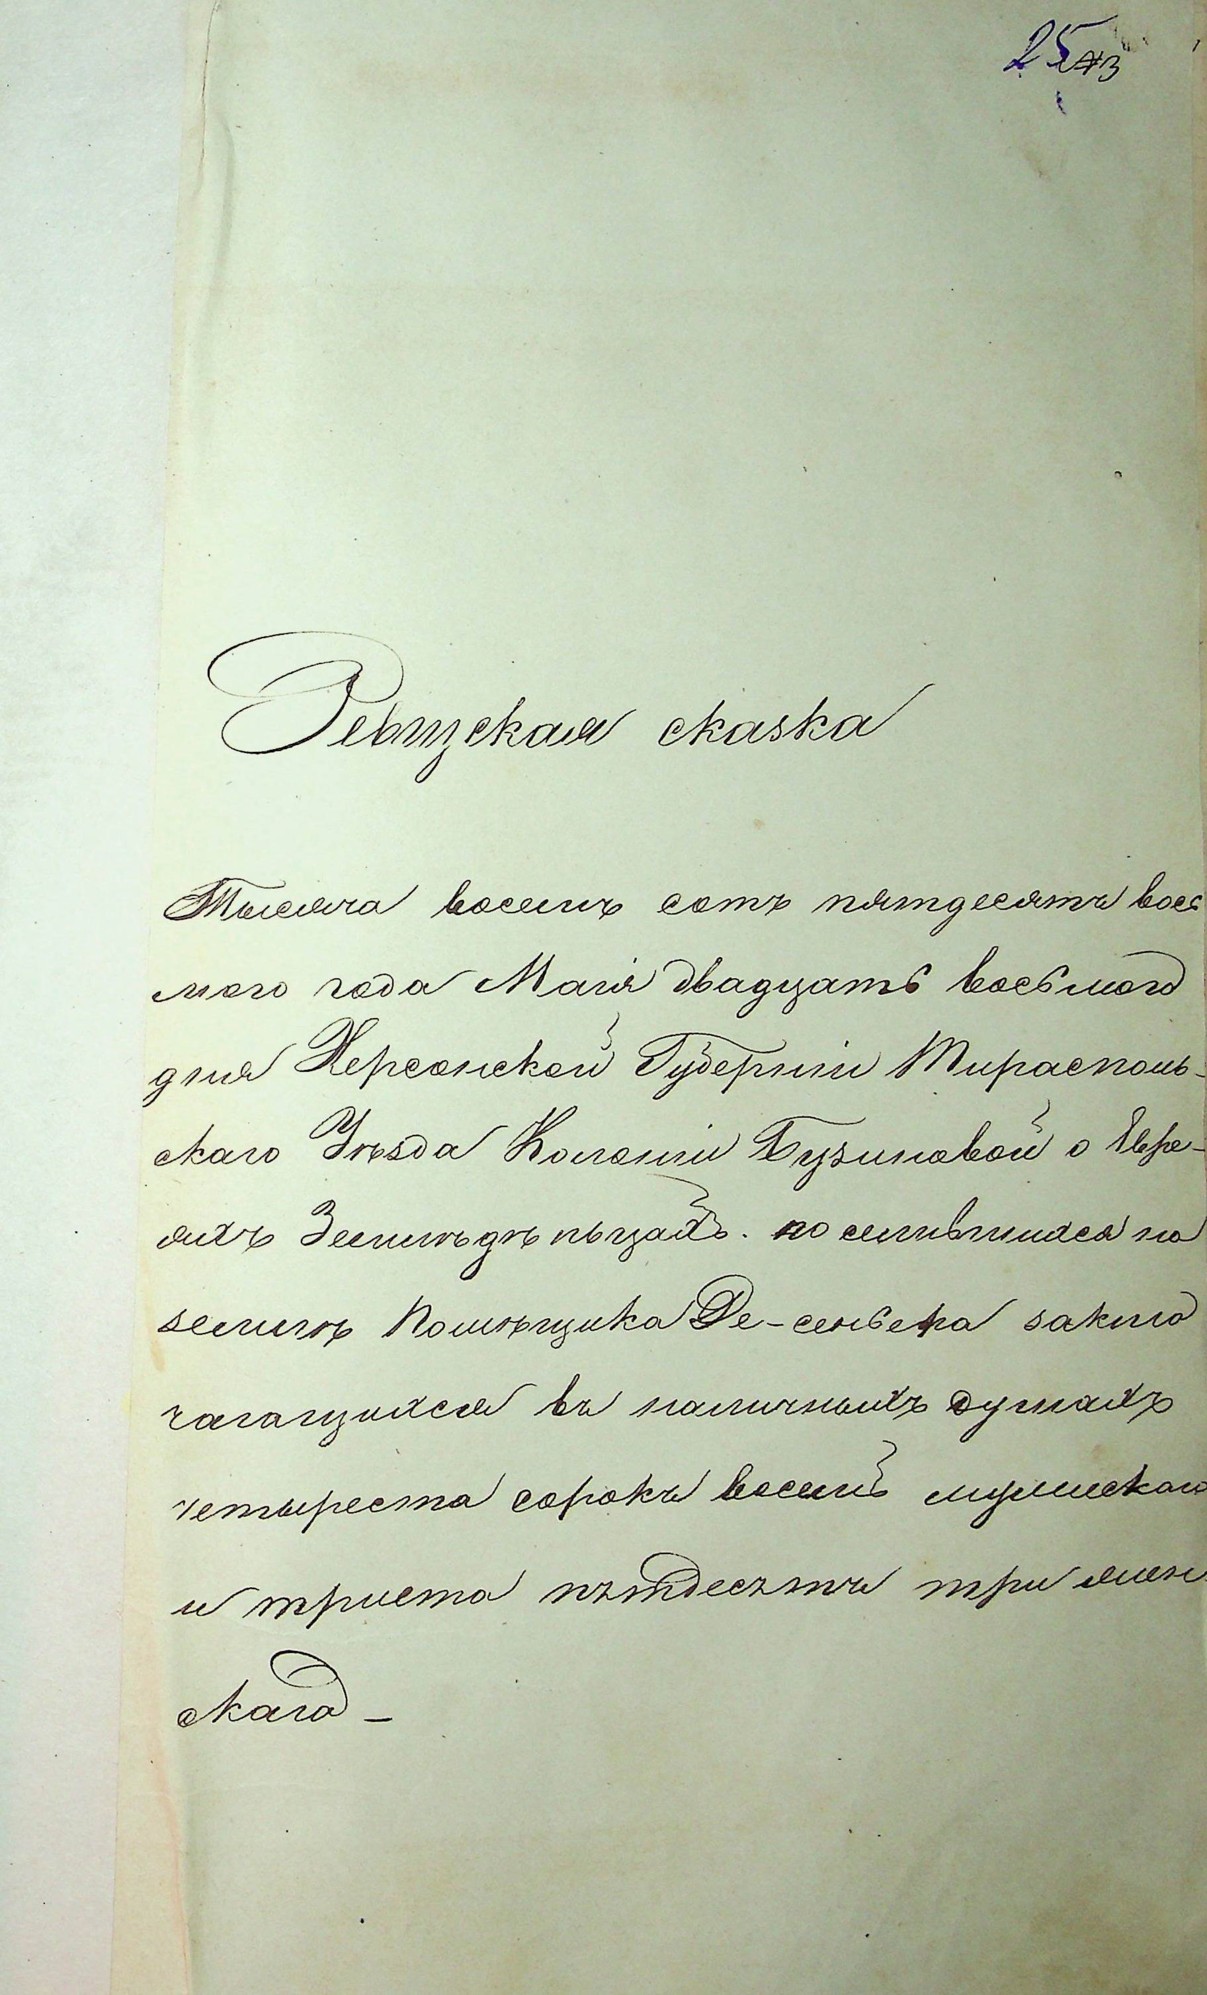 25
Ревизская сказка
Тысяча восемъ сотъ пятдесятъ вось
мого года Маія двадцать восьмого
дня Херсонской Губерніи Тирасполь-
скаго Уѣзда Колоніи Бузиновой о Евре-
яхъ Землѣдѣльцахъ. поселившихся на
землѣ Помѣщика Де-сен
заклю
чагащихся въ наличныхъ душахъ
четыреста сорокъ восемь мужескаго
и триста пѣтдесѣтъ три жен
скаго -